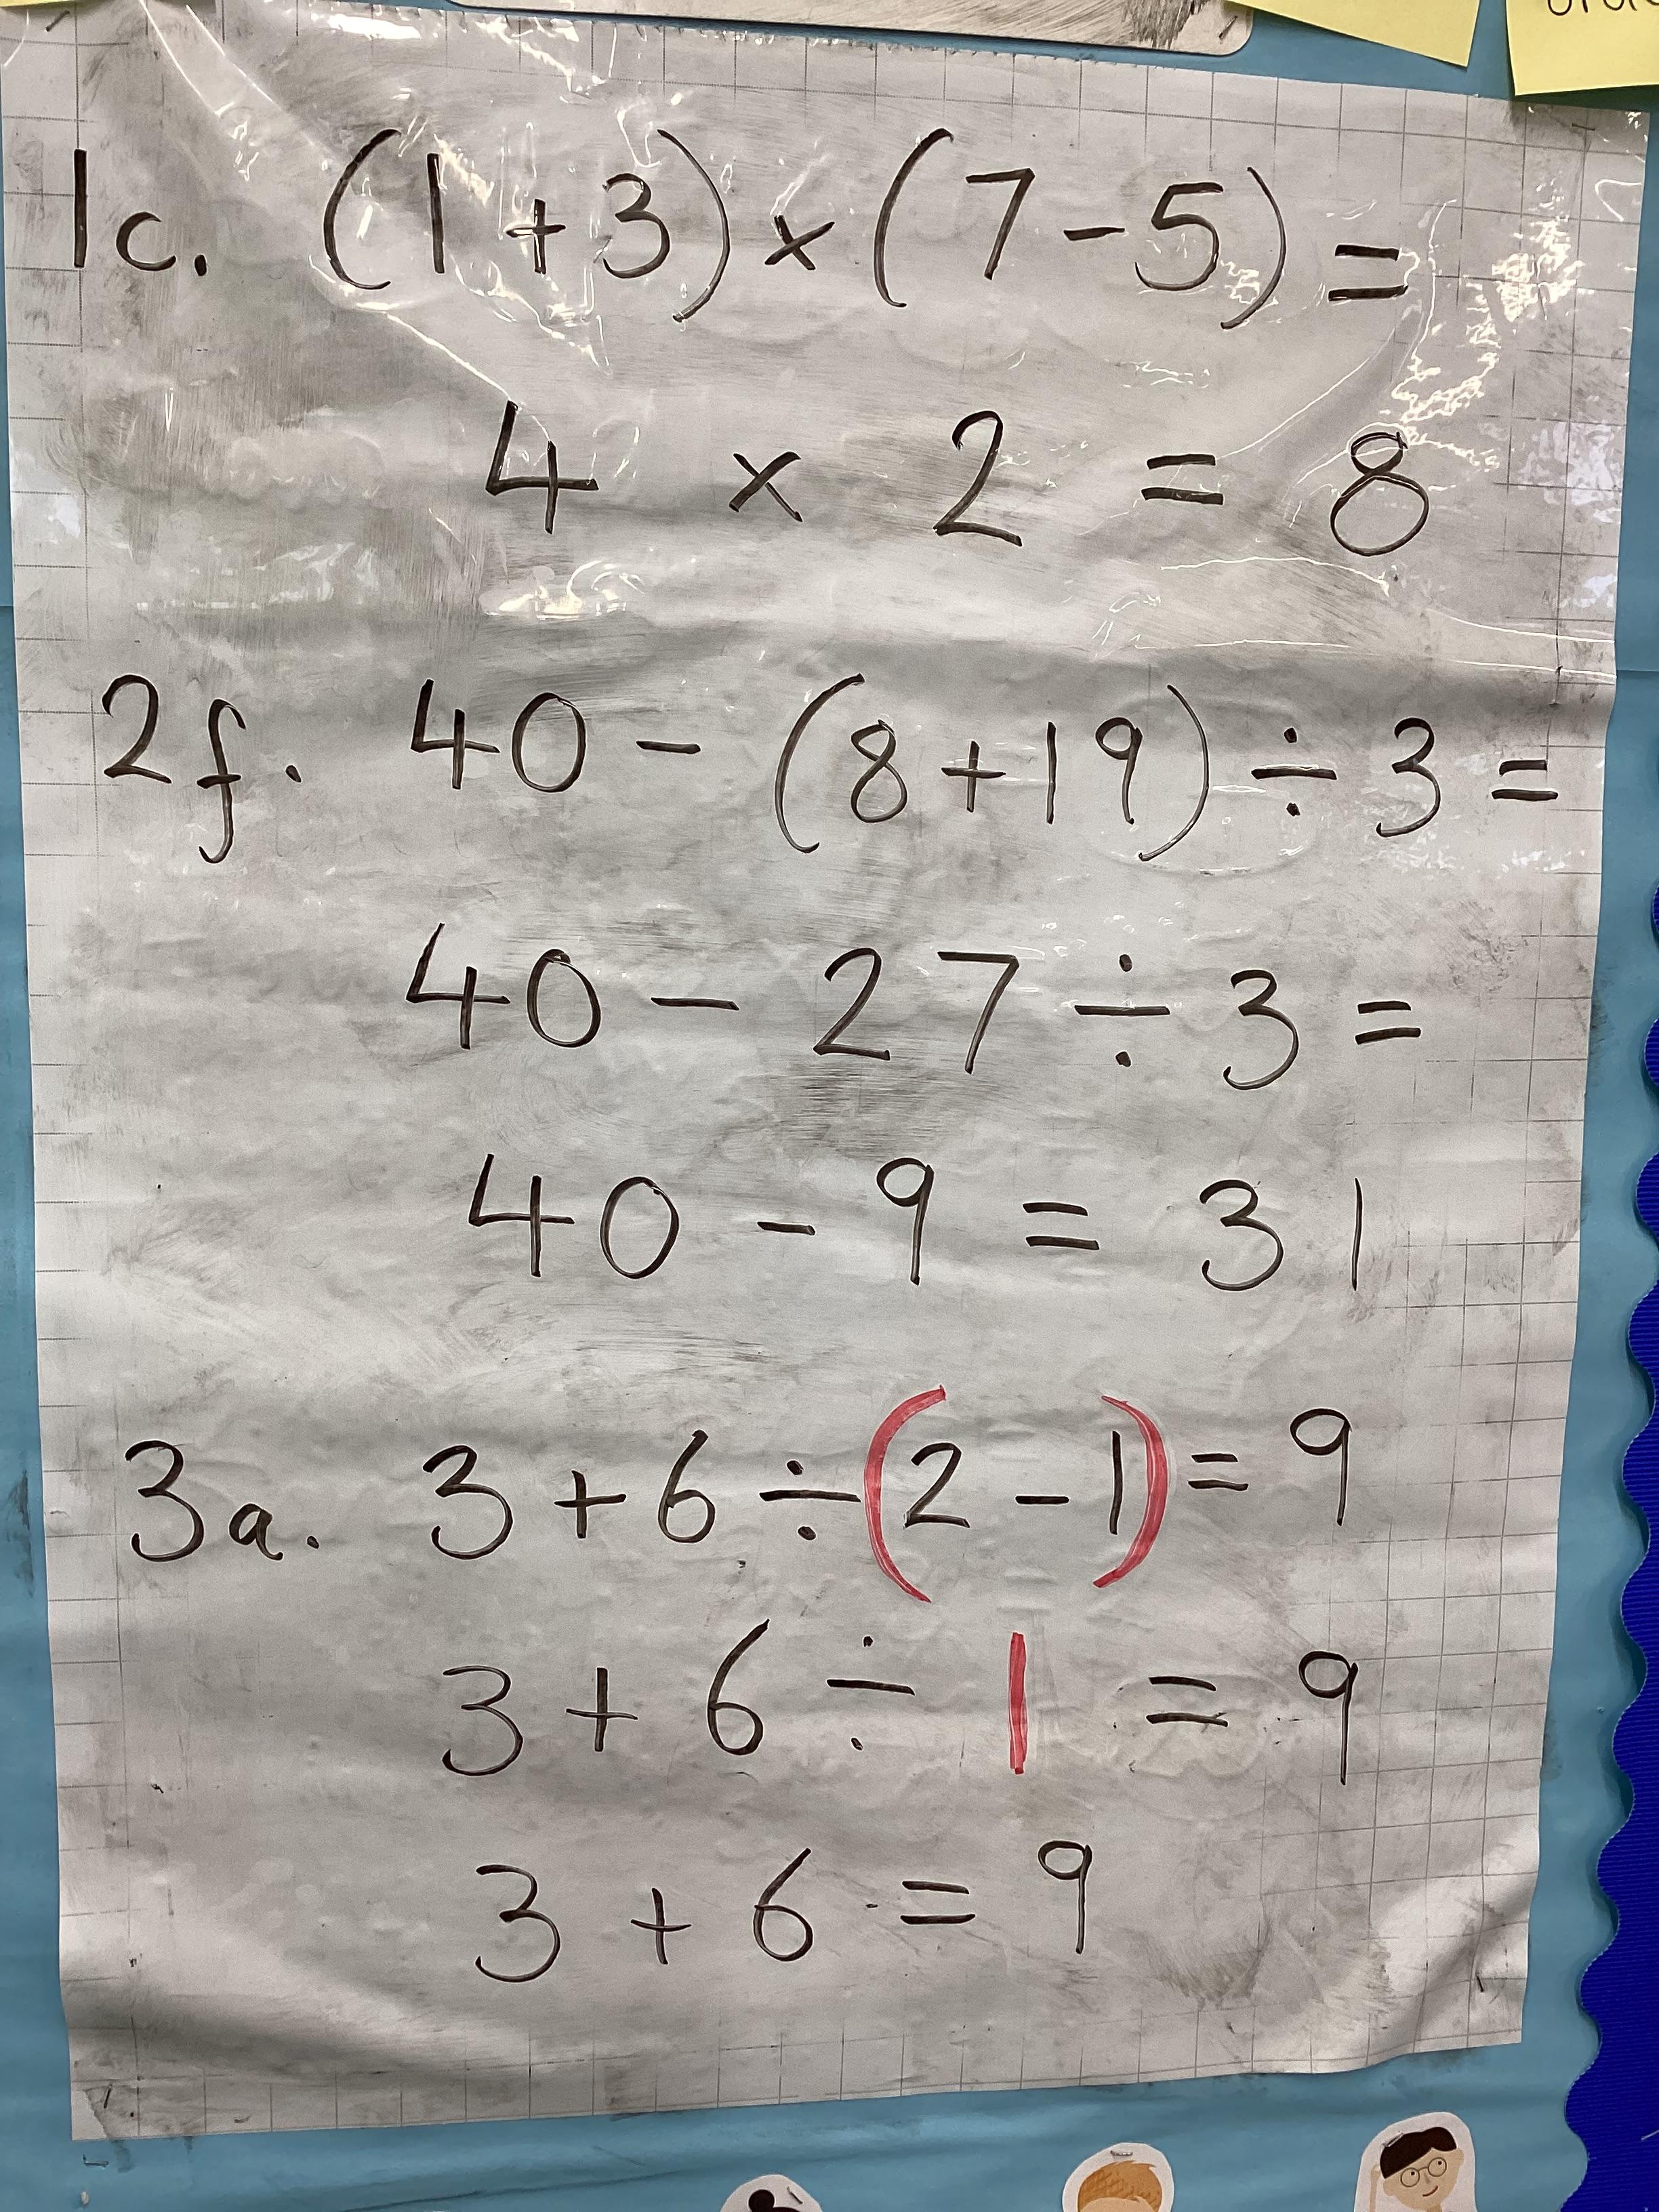 1c. (1+3)×(7-5)=
4 × 2 = 8
2f. 40 - (8+19) ÷ 3 =
40 - 27 ÷ 3 =
40 - 9 = 31
3a. 3 + 6 ÷ (2 - 1) = 9
3 + 6 ÷ 1 = 9
3 + 6 = 9